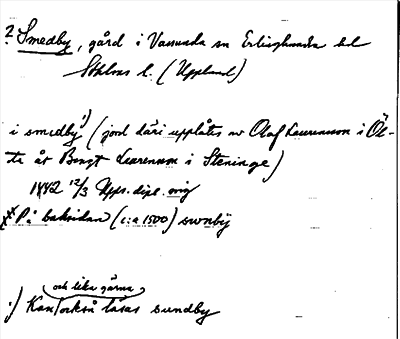 ? Smedby, gård i Vassunda sn Erlinghundra hd
Sthlms l. (Uppland)
i smedby 1) (jord däri upplåtes av Olaf Laurensson i Öl-
sta åt Bengt Laurensson i Steninge)
1442 12/3 Upps. dipl. orig
xx På baksidan (c:a 1500) swnbij
och lika gärna
1) Kan också läsas sundby